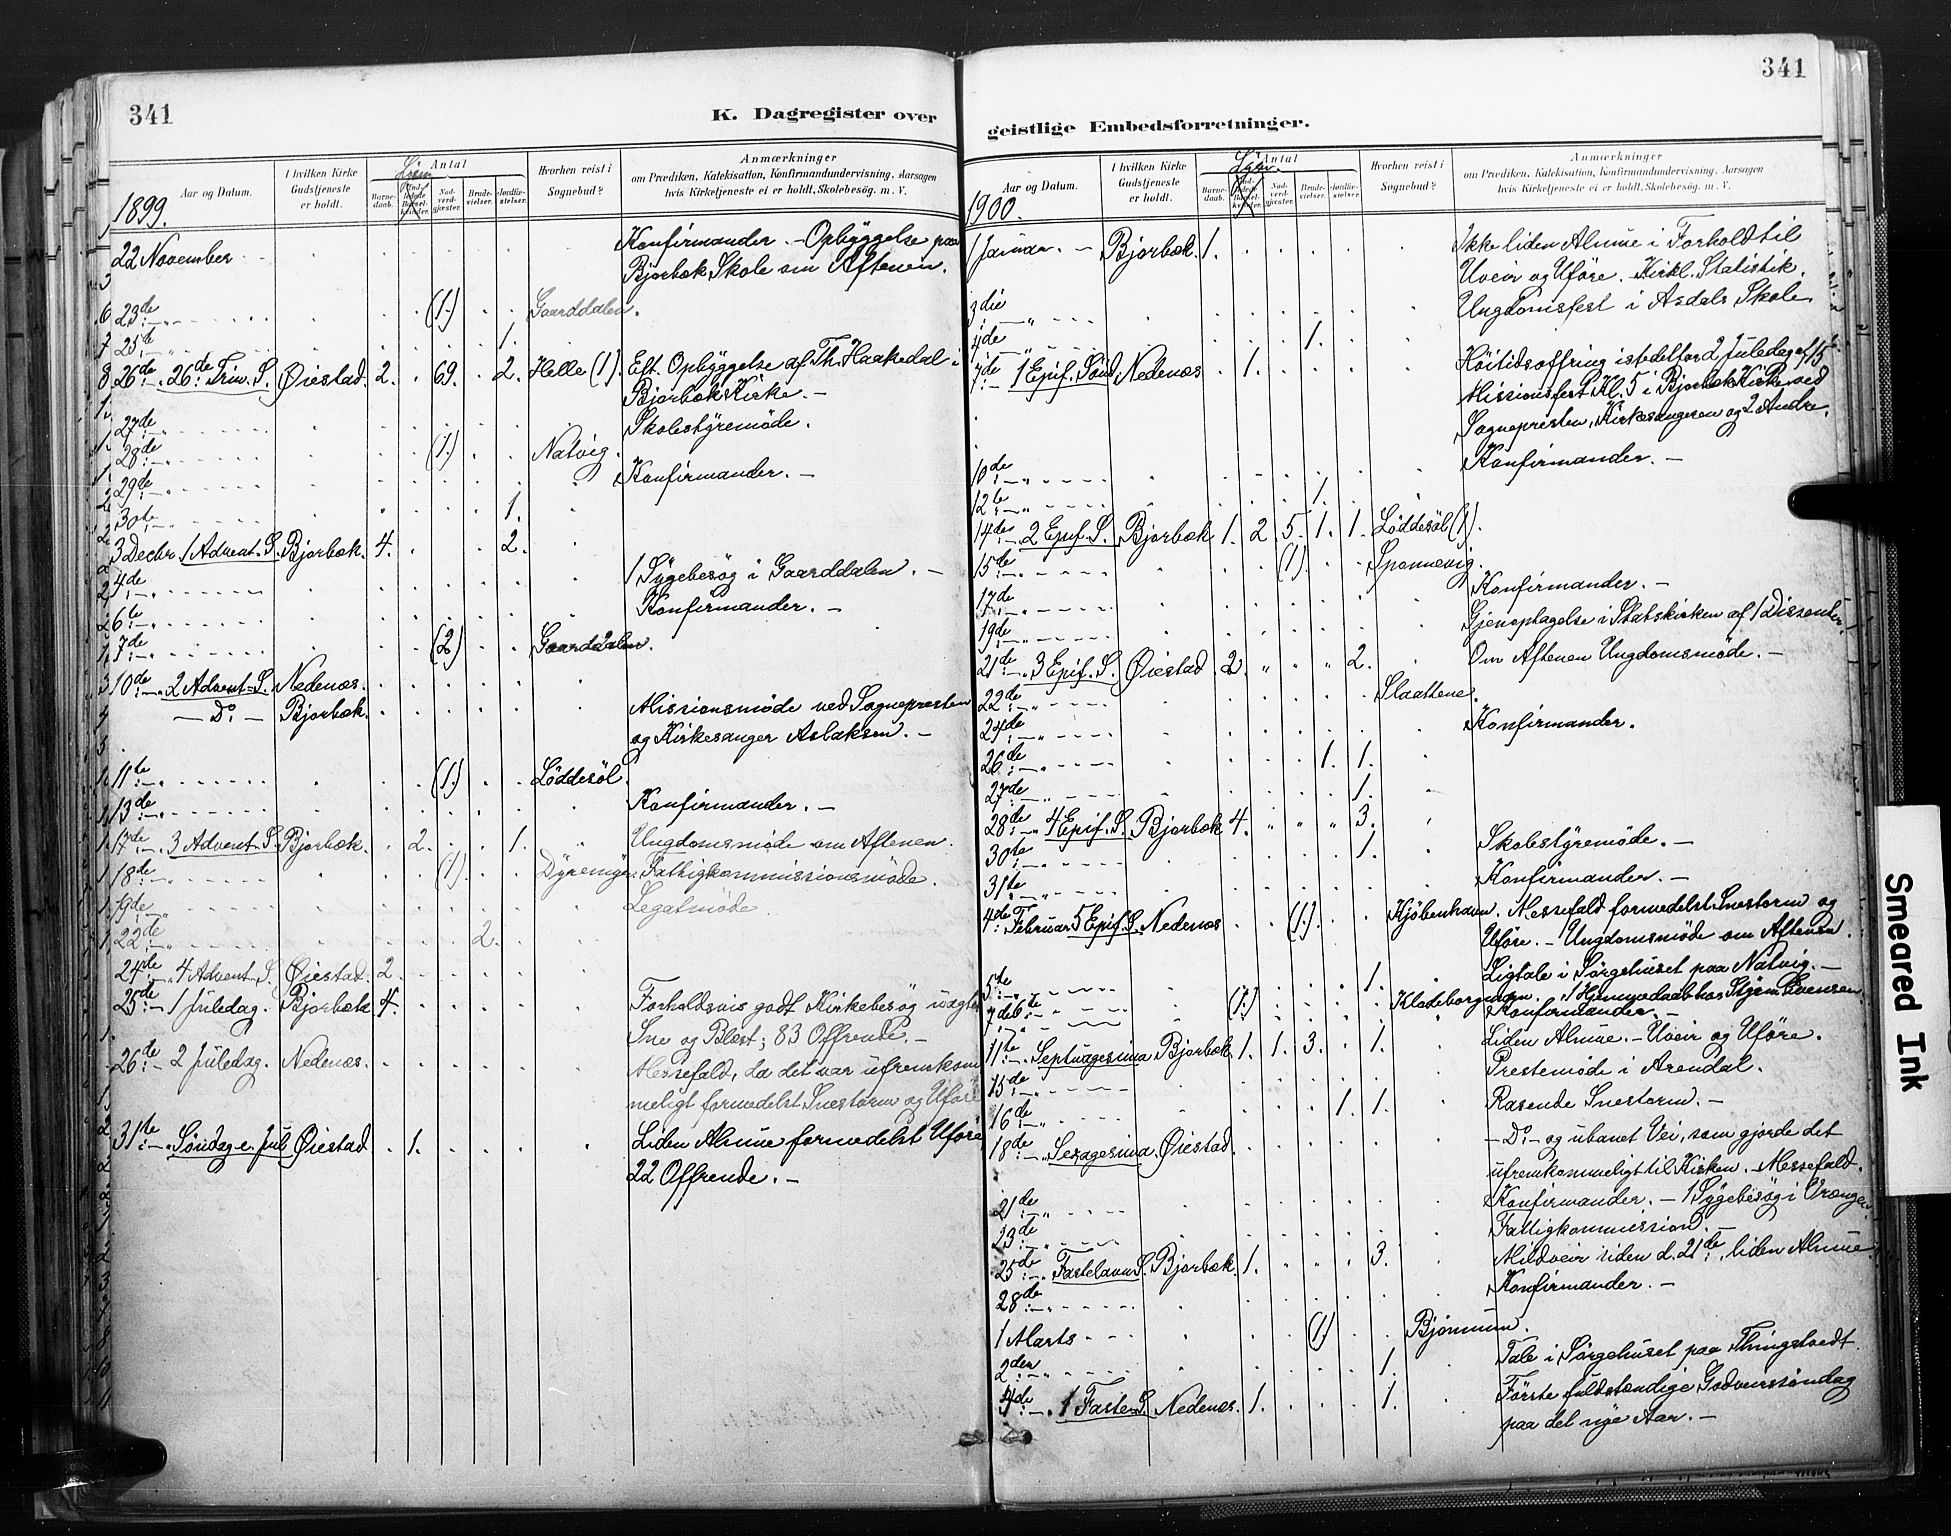 341
K. Dagregister over
Aar og Datum.
I hvilken Kirke Gudstjeneste er holdt.
Antal
Barne-daab.
Nad-verd-gjæster.
Brude-vielser.
Jordfæ-stelser.
Hvorhen reist i Sognebud?
Anmærkninger
om Prædiken, Katekisation, Konfirmandundervisning, Aarsagen
hvis Kirketjeneste ei er holdt, Skolebesøg. m. V.
1899.
22 November Konfirmander. - Opbyggelse paa
Bjorbæk Skole om Aftenen.
23de (1.) Gaarddalen.
25te 1.
26de 26de Trin. S. Øiestad 2. 69. 2. Helle (1). Eft. Opbyggelse af Th. Haakedal i
Bjorbæk Kirke. -
27de Skolestyremøde.
28de (1.) Natvig.
29de Konfirmander. -
30te 1.
3 Decbr. 1 Advent. S. Bjorbæk. 4. 2.
4de 1 Sygebesøg i Gaarddalen. -
6te Konfirmander. -
7de (2.) Gaarddalen.
10de 2 Advent-S. Nedenæs.
- Do. - Bjorbæk. Missionsmøde ved Sognepræsten
og Kirkesanger Aslaksen. -
11te (1.) Løddesøl.
13de Konfirmander. -
17de 3 Advent. S. Bjorbæk. 2. 1. Ungdomsmøde om Aftenen.
18de (1). Fattigkommissionsmøde.
19de Legatmøde
22de 2.
24de 4 Advent. S. Øiestad. 2.
25de 1 Juledag. Bjorbæk 4. Forholdsvis godt Kirkebesøg uagtet
Sne og Blæst; 83 Offrende. -
26de 2 Juledag. Nedenæs. Messefald, da det var ufremkom
meligt formedelst Snestorm og Uføre
31te Søndag e. Jul Øiestad 1. Liden Almue formedelst Uføre
22 Offrende. -
341
geistlige Embedsforretninger.
Aar og Datum.
I hvilken Kirke Gudstjeneste er holdt.
Antal
Barne-daab.
Nad-verd-gjæster.
Brude-vielser.
Jordfæ-stelser.
Hvorhen reist i Sognebud?
Anmærkninger
om Prædiken, Katekisation, Konfirmandundervisning, Aarsagen
hvis Kirketjeneste ei er holdt, Skolebesøg. m. V.
1900.
1 Januar. - Bjorbæk. 1. Ikke liden Almue i Forhold til
Uveir og Uføre. Kirkl. Statistik.
3die Ungdomsfest i Asdals Skole
4de 1.
7de 1 Epif. Sønd Nedenæs 1. Høitidsoffring istedetfor 2 Juledag
Missionsfest Kl. 5 i Bjorbæk Kirke ved
Sognepresten, Kirkesangeren og 2 Andre.
10de Konfirmander. -
12te 1.
14de 2 Epif. S. Bjorbæk 1. 2 5. 1. 1. Løddesøl (1).
15de (1). Spannevig.
17de Konfirmander. -
19de Gjenoptagelse i Statskirken af 1 Dissenter.
21de 3 Epif. S. Øiestad 2. 2. Om Aftenen Ungdomsmøde. -
22de Slaattene.
24de Konfirmander.
26de 1. 1.
27de 1.
28de 4 Epif. S. Bjorbæk 4. 3.
30te 1. Skolestyremøde. -
31te Konfirmander. -
4de Februar 5 Epif. S. Nedenæs (1.) Kjøbenhavn. Messefald formedelst Snestorm og
Uføre. - Ungdomsmøde om Aftenen.
5te 1. Ligtale i Sørgehuset paa Natvig. -
6te (1.) 1 Hjemmedaab hos Evensen
7de Konfirmander. -
11te Septuagesima Bjorbæk 1. 1. 3. 1. Liden Almue. - Uveir og Uføre.
15de Prestemøde i Arendal.
16de 1. 1. Rasende Snestorm. -
18de Sexagesima Øiestad. - Do. - og ubanet Vei, som gjorde det
ufremkommeligt til Kirken. - Messefald.
21de Konfirmander. - 1 Sygebesøg i
23de Fattigkommission. -
25de Fastelavns S. Bjorbæk 1. 3. Mildveir siden d. 21de, liden Almue
28de Konfirmander. -
1 Marts (1) Bjønnum.
2den 1. Tale i Sørgehuset paa Thingstvedt
4de 1 Faste S. Nedenæs. 1. 1. Første fuldstændige Godveirssøndag
paa det nye Aar. -
Smeared Ink